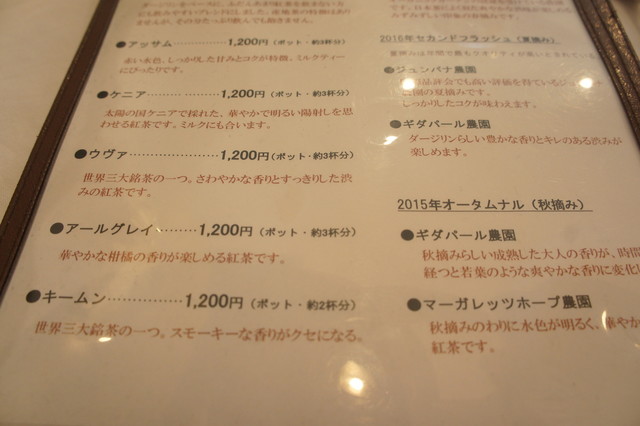 ません、その分たっぷり飲んでも飽きません。
●アッサム………………1,200円(ポット・約3杯分)
赤い水色、しっかりした甘みとコクが特徴。ミルクティー
にぴったりです。
●ケニア…………………1,200円(ポット・約3杯分)
太陽の国ケニアで採れた、華やかで明るい陽射しを思
わせる紅茶です。ミルクにも合います。
●ウヴァ…………………1,200円(ポット・約3杯分)
世界三大銘茶の一つ。さわやかな香りとすっきりした渋
みの紅茶です。
●アールグレイ…………1,200円(ポット・約3杯分)
華やかな柑橘の香りが楽しめる紅茶です。
●キームン………………1,200円(ポット・約2杯分)
世界三大銘茶の一つ。スモーキーな香りがクセになる。
2016年セカンドフラッシュ(夏摘み)
●ジュンパナ農園
品評会でも高い評価を得ている
園の夏摘みです。
しっかりしたコクが味わえます。
●ギダパール農園
ダージリンらしい豊かな香りとキレのある渋みが
楽しめます。
2015年オータムナル(秋摘み)
●ギダパール農園
秋摘みらしい成熟した大人の香りが、時間
経つと若葉のような爽やかな香りに変化
●マーガレッツホープ農園
秋摘みのわりに水色が明るく、華や
紅茶です。